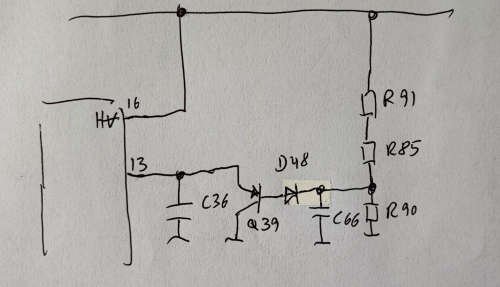 16
HV
R91
13
D48
R85
C36
Q39
C66
R90